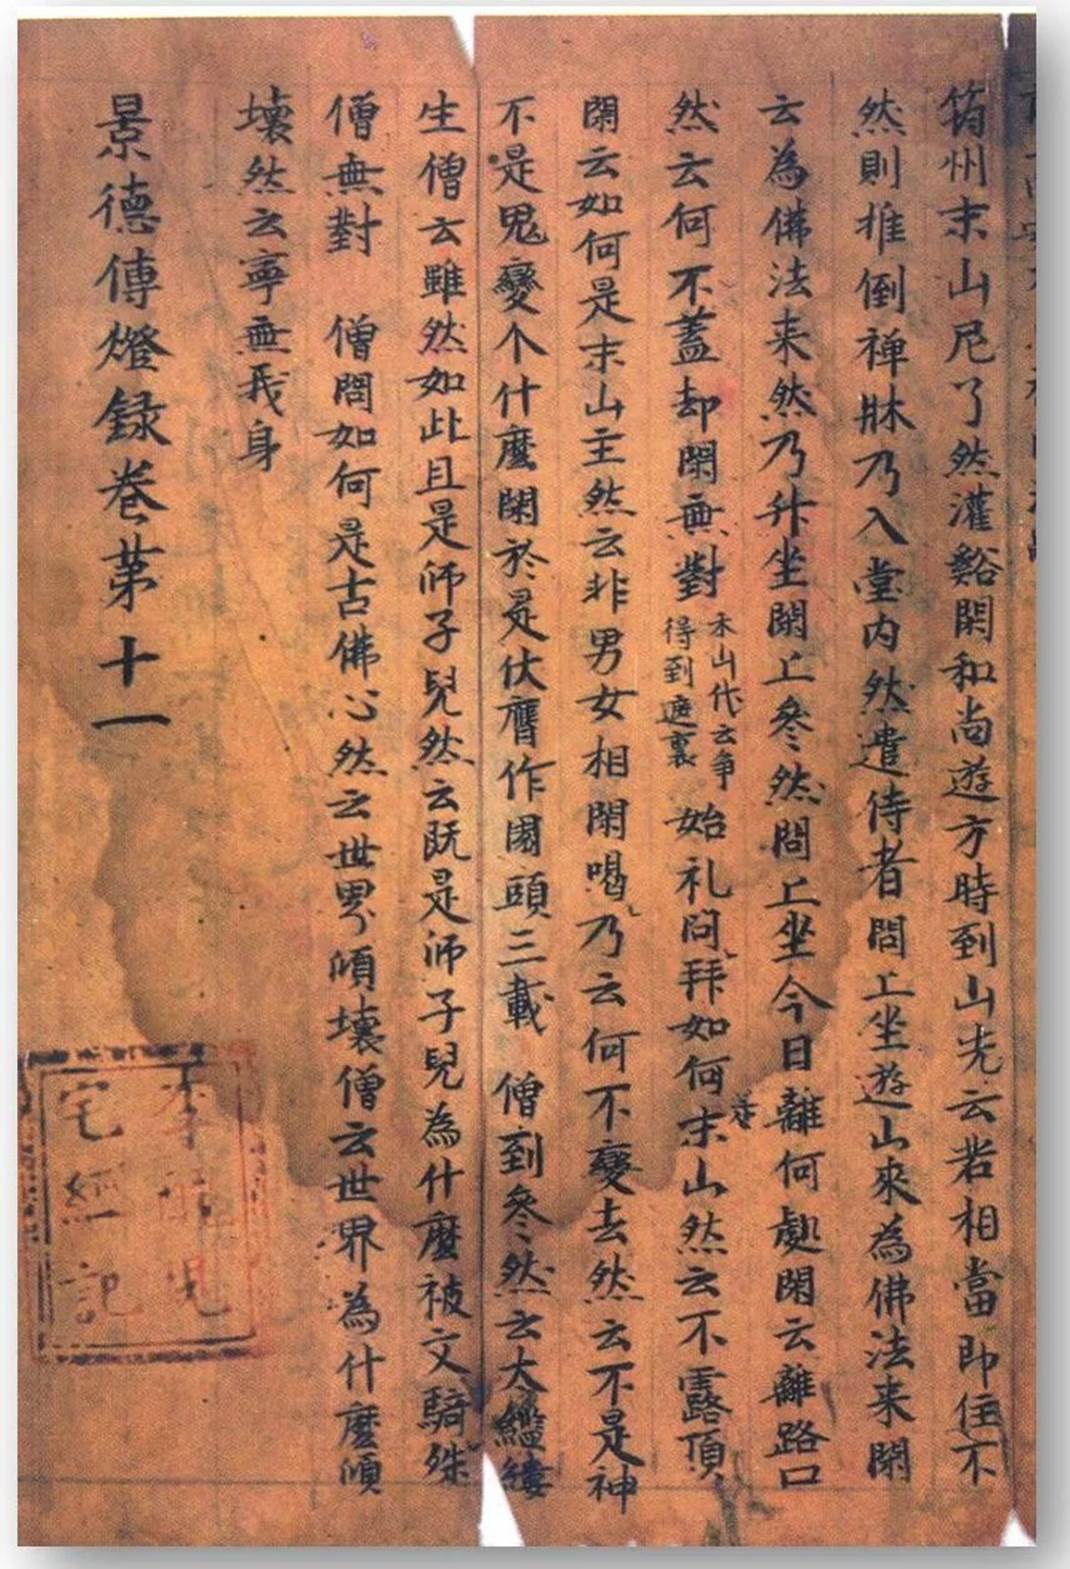 筠州末山尼了然灌谿閑和尚遊方時到山先云若相當即住不
然則推倒禅牀乃入堂内然遣侍者問上坐遊山來為佛法来閑
云為佛法来然乃升坐閑上参然問上坐今日離何處閑云離路口
然云何不蓋却閑無對
末山代云争
得到遮裏
始礼拜問如何是末山然云不露頂
閑云如何是末山主然云非男女相閑喝乃云何不變去然云不是神
不是鬼變个什麼閑於是伏膺作園頭三載 僧到参然云太繿縷
生僧云雖然如此且是师子兒然云既是师子兒為什麼被文騎殊
僧無對 僧問如何是古佛心然云世界傾壞僧云世界為什麼傾
壞然云寧無我身
景德傳燈録卷第十一
李
宅經記